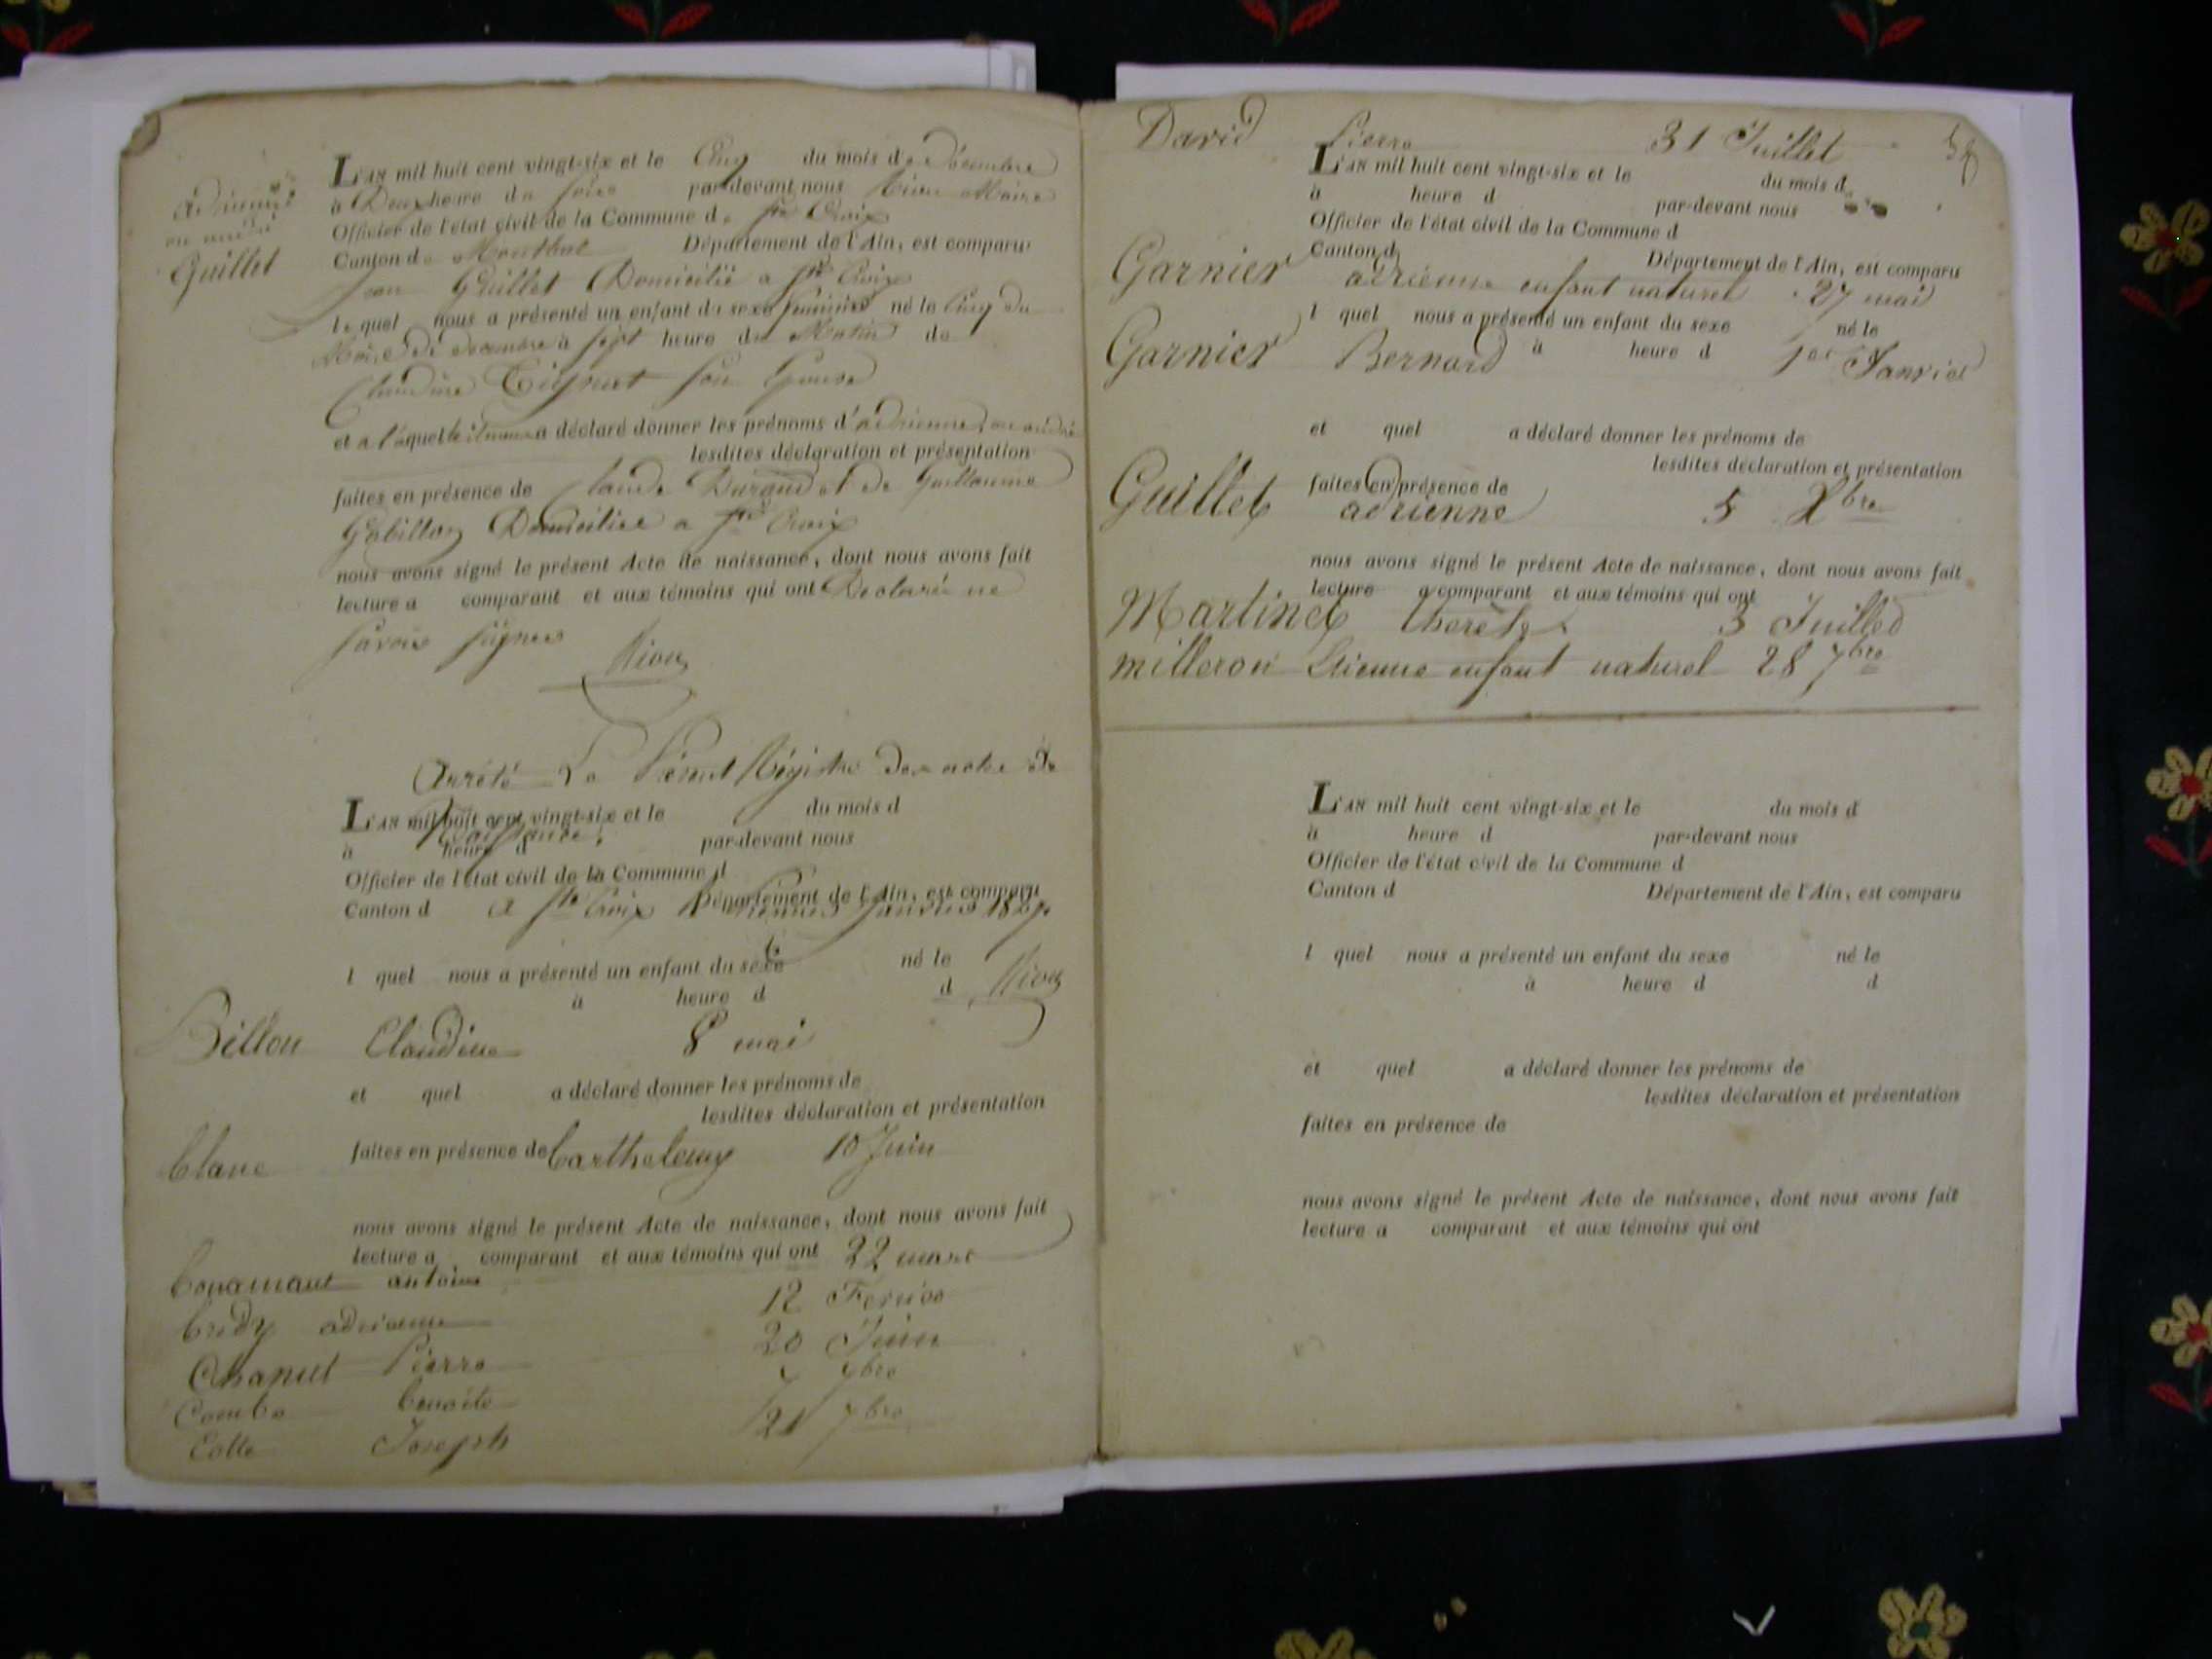 L'AN mil huit cent vingt-six et le Cinq du mois de Décembre
à Deux heure du soir par-devant nous Maire
Officier de l'état civil de la Commune de Ste Croix
Canton de Département de l'Ain, est comparu
Jean Guillet Domicilié a Ste Croix
lequel nous a présenté un enfant du sexe féminin né le Cinq du
Mois de decembre à sept heure du Matin de
Claudine son Epouse
et a déclaré donner les prénoms d'adrienne
lesdites déclaration et présentation
faites en présence de Claude Durand et de Guillaume
Domicilié a Ste Croix
nous avons signé le présent Acte de naissance, dont nous avons fait
lecture a comparant et aux témoins qui ont Declaré ne
savoir signer
Guillet
Arrêté Le Présent Régistre des actes de
L'AN mil huit cent vingt-six et le du mois d
Naissance
à heure d par-devant nous
Officier de l'état civil de la Commune d
Canton d Département de l'Ain, est comparu
a Ste Croix Janvier 1827
l quel nous a présenté un enfant du sexe né le
à heure d d
Billon Claudine 8 mai
et quel a déclaré donner les prénoms de
lesdites déclaration et présentation
faites en présence de
blanc barthelemy 10 Juin
nous avons signé le présent Acte de naissance, dont nous avons fait
lecture a comparant et aux témoins qui ont
antoine 22 mars
bredy adrienne 12
Chanut Pierre 20 Juin
Combe benoite 7 7bre
Cotte Joseph 21 7bre
David Pierre 31 Juillet
L'AN mil huit cent vingt-six et le du mois d
à heure d par-devant nous
Officier de l'état civil de la Commune d
Canton d Département de l'Ain, est comparu
Garnier adrienne enfant naturel 27 mai
l quel nous a présenté un enfant du sexe né le
à heure d
Garnier Bernard 1er Janvier
et quel a déclaré donner les prénoms de
lesdites déclaration et présentation
faites en présence de
Guillet adrienne 5 Xbre
nous avons signé le présent Acte de naissance, dont nous avons fait
lecture a comparant et aux témoins qui ont
Martinet 3 Juillet
milleron Etienne enfant naturel 28 7bre
L'AN mil huit cent vingt-six et le du mois d
à heure d par-devant nous
Officier de l'état civil de la Commune d
Canton d Département de l'Ain, est comparu
l quel nous a présenté un enfant du sexe né le
à heure d d
et quel a déclaré donner les prénoms de
lesdites déclaration et présentation
faites en présence de
nous avons signé le présent Acte de naissance, dont nous avons fait
lecture a comparant et aux témoins qui ont